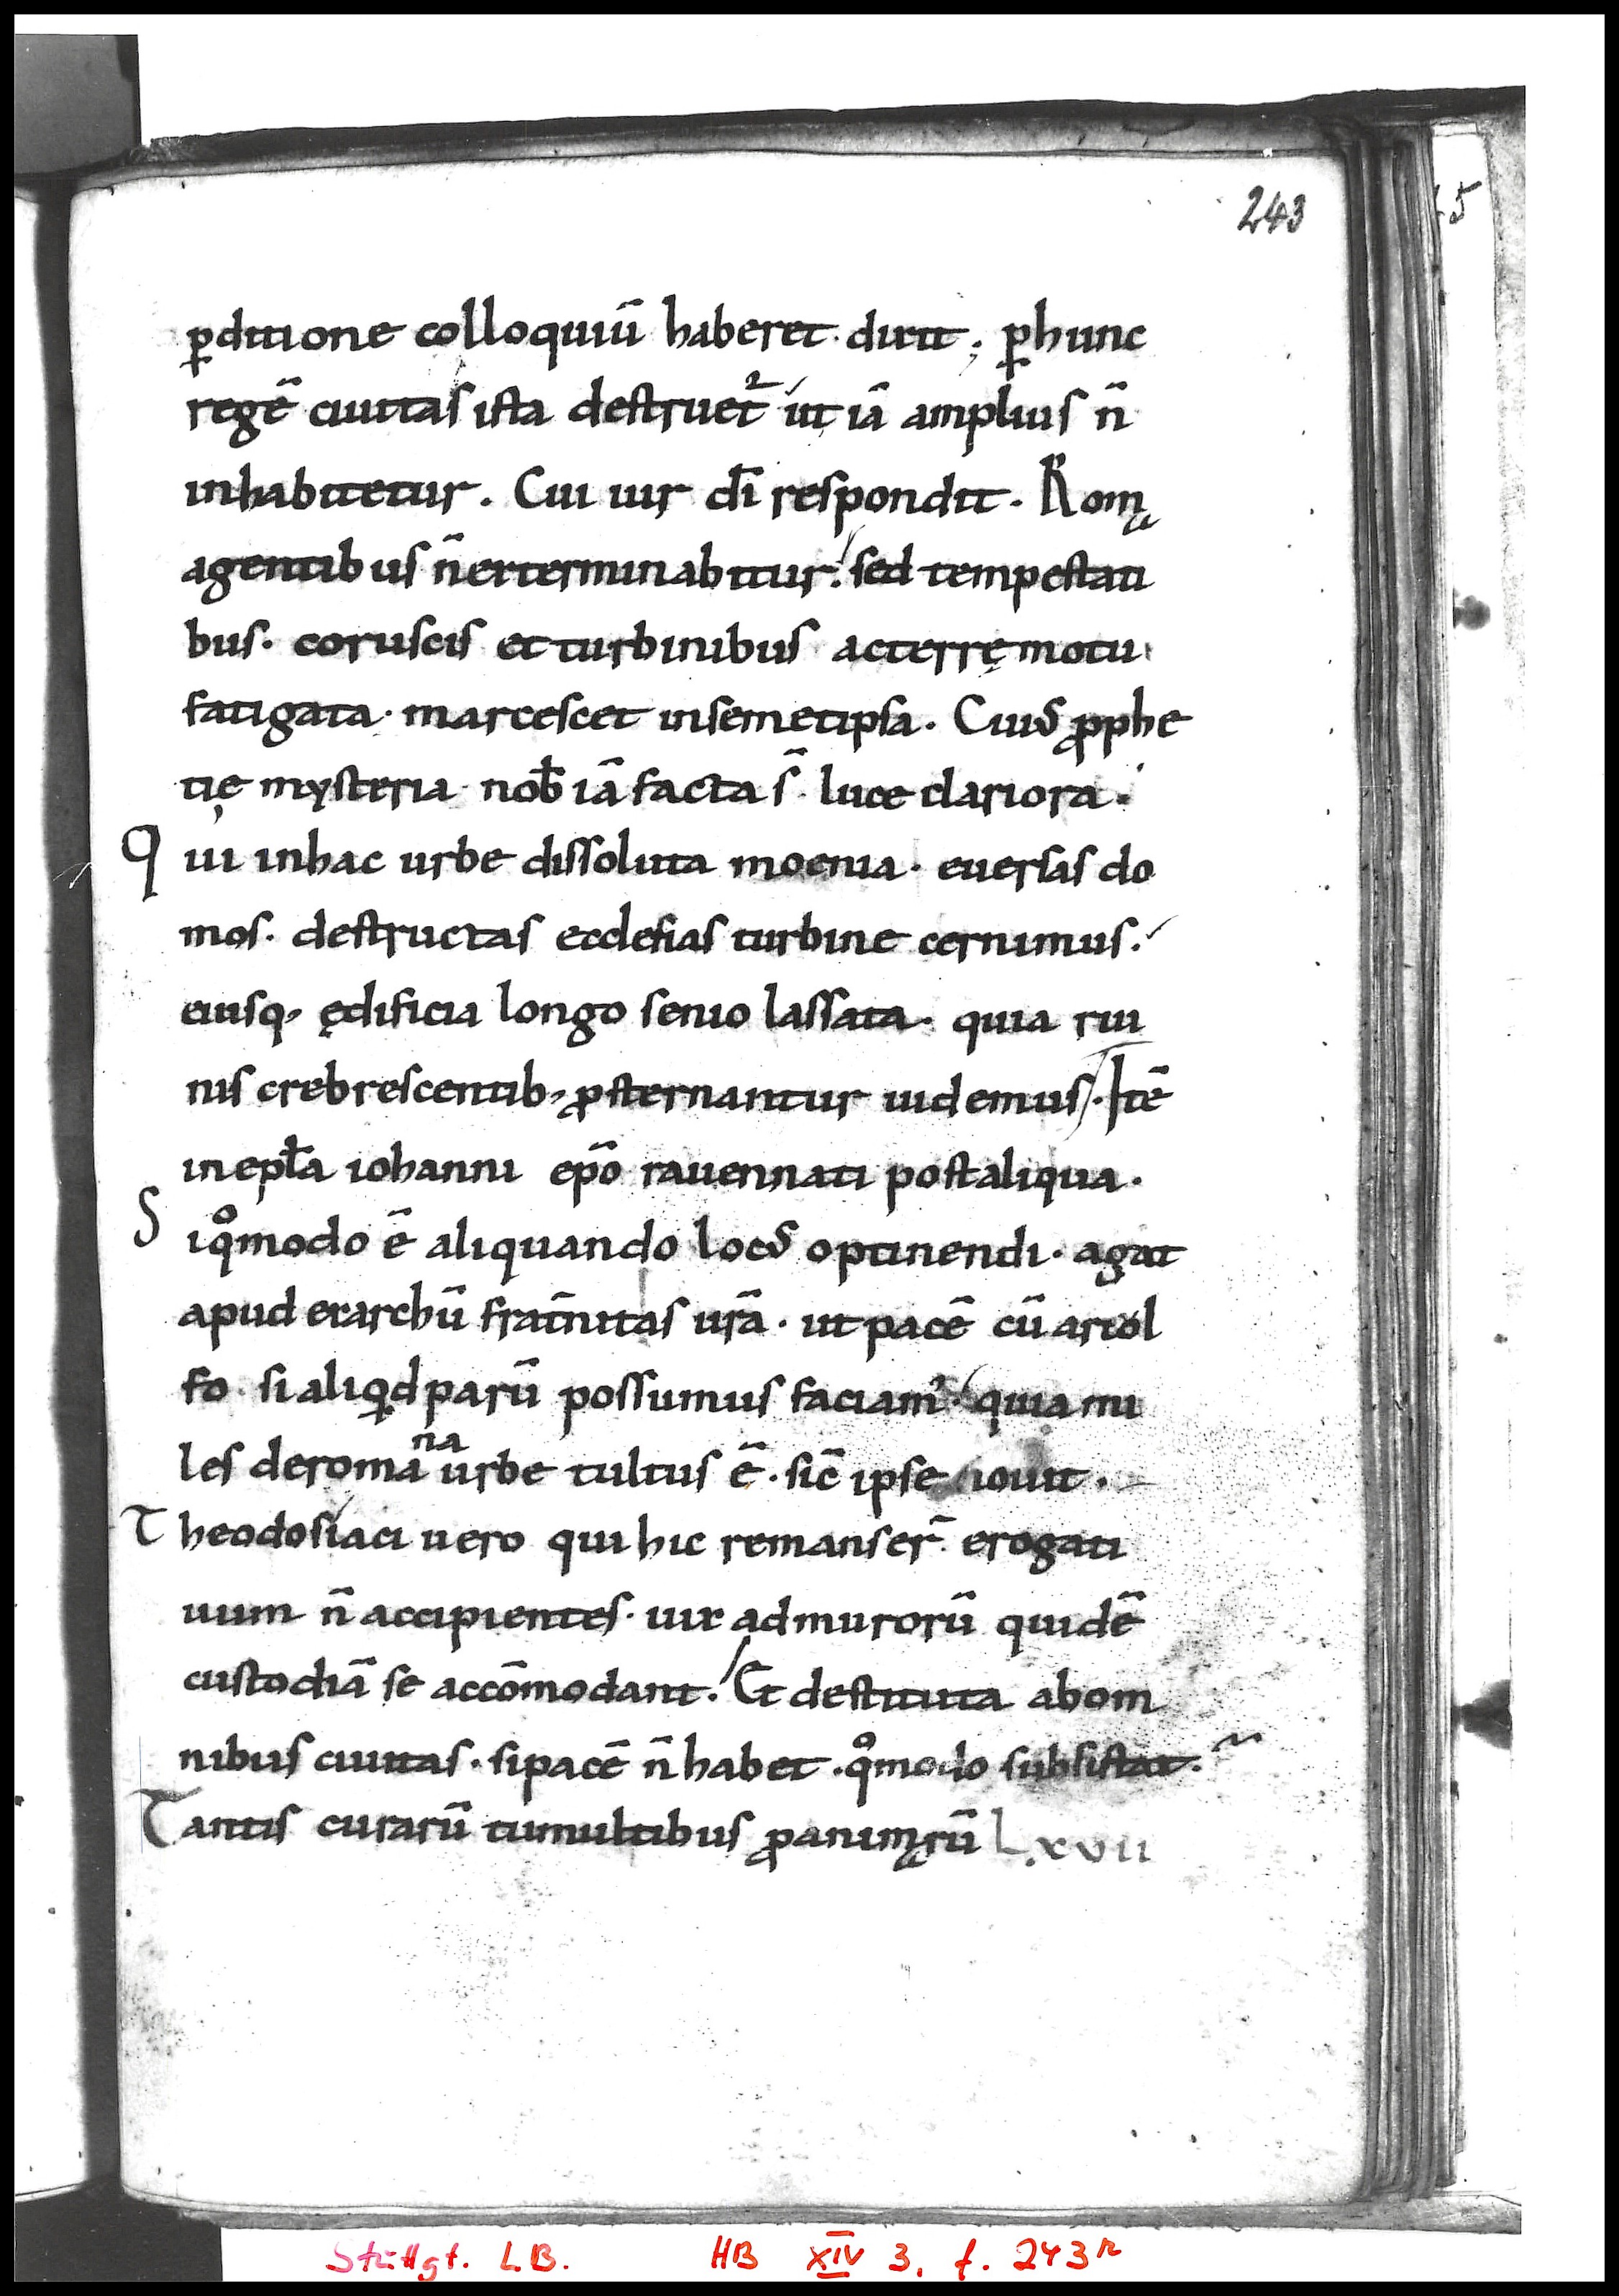 243
45
ꝑditione colloquiū haberet· dixit; ꝑ hunc
regē ciuitas ista destruet̄ ut iā amplius n̄
inhabitetur. Cui uir dī respondit. Romę
agentibus n̄ exterminabitur. sed tempestati
bus· coruscis et turbinibus ac terrę motu
fatigata· marcescet in semetipsa. Cuiꝰ ꝓphe
tię mysteria nob̄ iā facta s̄ luce clariora.
Qui in hac urbe dissoluta moenia· euersas do
mos· destructas ecclesias turbine cernimus.
eiusq; ędificia longo senio lassata· quia rui
nis crebrescentib; ꝓsternantur uidemus. Itē
in epła iohanni ep̄o rauennati post aliqua.
Siqͦmodo ē aliquando locꝰ optinendi· agat
apud exarchū frat̄nitas ur̄a· ut pacē cū ariol
fo· si aliqd parū possumus faciam᾿· quia mi
les de romana urbe tultus ē· sic̄ ipse nouit.
Theodosiaci uero qui hic remanser̄ erogati
uum n̄ accipientes· uix ad murorū quidē
custodiā se accōmodant. Et destituta ab om
nibus ciuitas· si pacē n̄ habet· qͦmodo subsistat.
Tantis curarū tumultibus ꝓ animarū Lxvii
Stuttgt. L.B. HB XIV 3. f. 243r